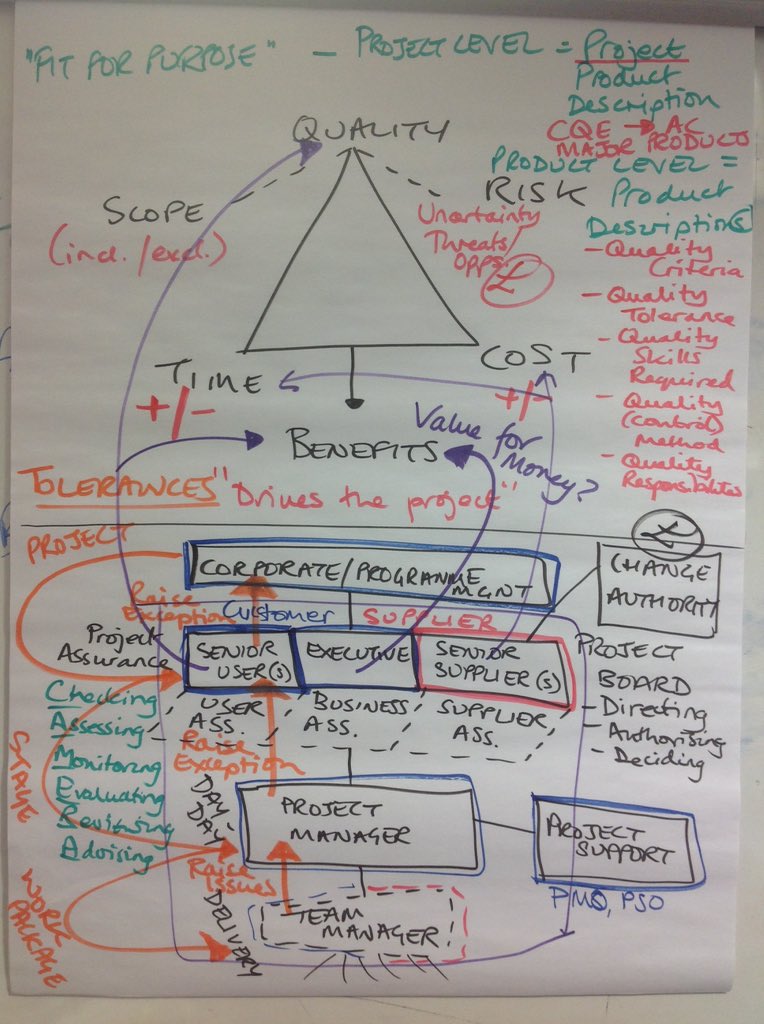 "FIT FOR PURPOSE" - PROJECT LEVEL = Project
Product
Description
CQE → AC
MAJOR PRODUCTS
PRODUCT LEVEL =
Product
Description(s)
- Quality
Criteria
- Quality
Tolerance
- Quality
Skills
Required
- Quality
(control)
Method
- Quality
Responsibilities
QUALITY
SCOPE
(incl./excl.)
RISK
Uncertainty
Threats/
Opps.
£
TIME
+/-
COST
+/-
BENEFITS
Value for
Money?
TOLERANCES
"Drives the project"
PROJECT
CORPORATE/PROGRAMME
MGNT
£
CHANGE
AUTHORITY
Raise
Exception
Customer
SUPPLIER
Project
Assurance
SENIOR
USER(S)
EXECUTIVE
SENIOR
SUPPLIER(S)
PROJECT
BOARD
- Directing
- Authorising
- Deciding
USER
ASS.
BUSINESS
ASS.
SUPPLIER
ASS.
Checking
Assessing
Monitoring
Evaluating
Reviewing
Advising
STAGE
Raise
Exception
DAY-
DAY
PROJECT
MANAGER
PROJECT
SUPPORT
PMO, PSO
Raise
Issues
WORK
PACKAGE
DELIVERY
TEAM
MANAGER